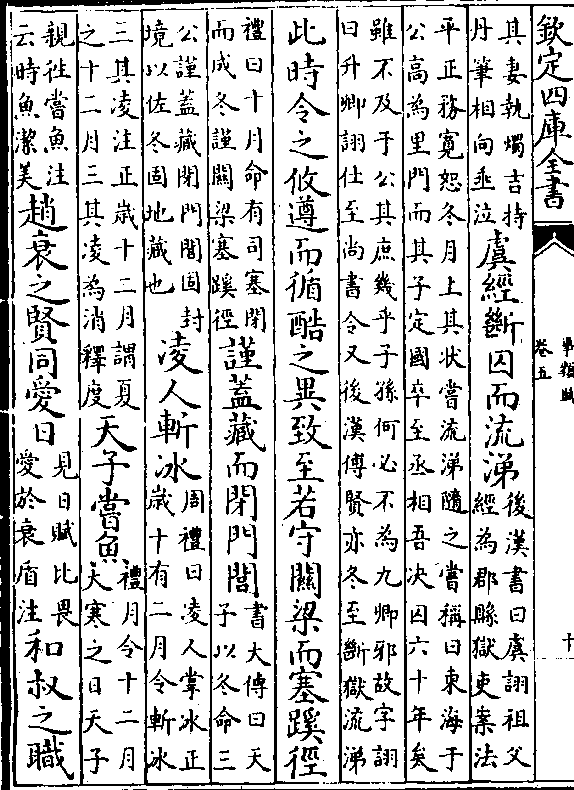 欽定四庫全書
事類賦
卷五
十
其妻執燭吉持
丹筆相向垂泣
虞經斷囚而流涕
後漢書曰虞詡祖父
經為郡縣獄吏案法
平正務寛恕冬月上其狀嘗流涕隨之嘗稱曰東海于
公高為里門而其子定國卒至丞相吾决囚六十年矣
雖不及于公其庶幾乎子孫何必不為九卿邪故字詡
曰升卿詡仕至尚書令又後漢傅賢亦冬至斷獄流涕
此時令之攸遵而循酷之異致至若守關梁而塞蹊徑
禮曰十月命有司塞閉
而成冬謹關梁塞蹊徑
謹蓋藏而閉門閭
書大傳曰天
子以冬命三
公謹蓋藏閉門閭固封
境以佐冬固地藏也
凌人斬冰
周禮曰凌人掌冰正
歲十有二月令斬冰
三其凌注正歲十二月謂夏
之十二月三其凌為消釋度
天子嘗魚
禮月令十二月
大寒之日天子
親往嘗魚注
云時魚潔美
趙衰之賢同愛日
見日賦比畏
愛於衰盾注
和叔之職